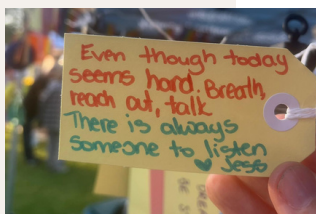 Even though today
seems hard. Breath,
reach out, talk
There is always
someone to listen
Jess